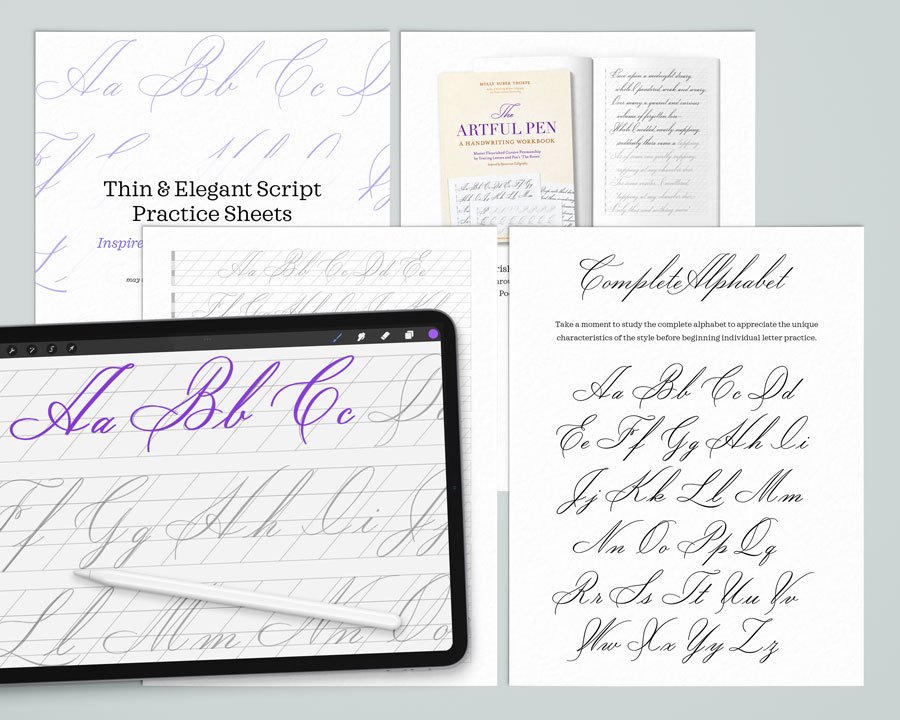 Aa Bb Cc D
Thin & Elegant Script
Practice Sheets
Inspire
may
MOLLY SUBER THORPE
The
ARTFUL PEN
A HANDWRITING WORKBOOK
Master Flourished Cursive Penmanship
by Tracing Letters and Poe's "The Raven"
Inspired by Spencerian Calligraphy
Once upon a midnight dreary,
while I pondered, weak and weary,
Over many a quaint and curious
volume of forgotten lore—
While I nodded, nearly napping,
suddenly there came a tapping,
As of some one gently rapping,
rapping at my chamber door.
Only this and nothing more
Aa Bb Cc Dd Ee
Ff Gg Hh Ii Jj Kk
Aa Bb Cc Dd
Ff Gg Hh Ii Jj
Ll Mm Nn Oo
Complete Alphabet
Take a moment to study the complete alphabet to appreciate the unique
characteristics of the style before beginning individual letter practice.
Aa Bb Cc Dd
Ee Ff Gg Hh Ii
Jj Kk Ll Mm
Nn Oo Pp Qq
Rr Ss Tt Uu Vv
Ww Xx Yy Zz